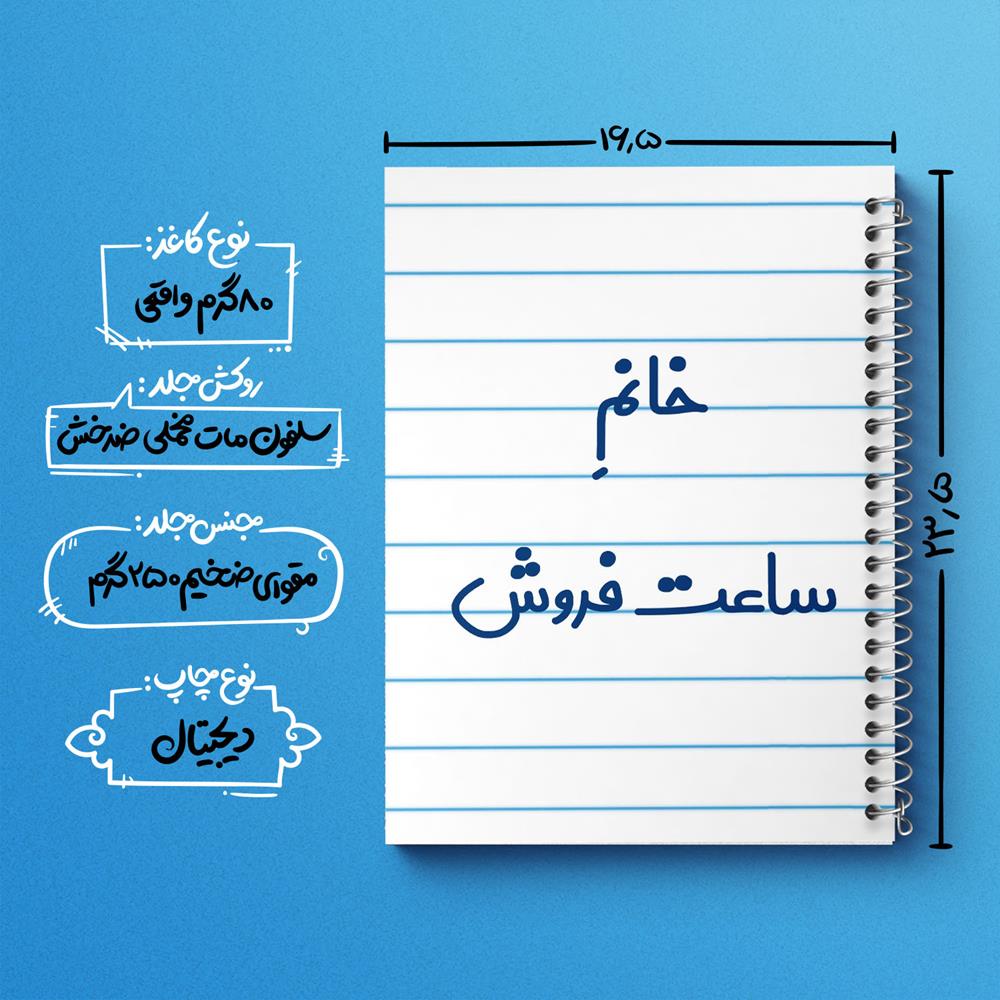 ۱۶,۵
۲۳,۵
خانمِ
ساعت فروش
نوع کاغذ:
۸۰گرم واقعی
روکش جلد:
سلفون مات مخملی ضدخش
جنس جلد:
مقوای ضخیم ۲۵۰ گرم
نوع چاپ:
دیجیتال